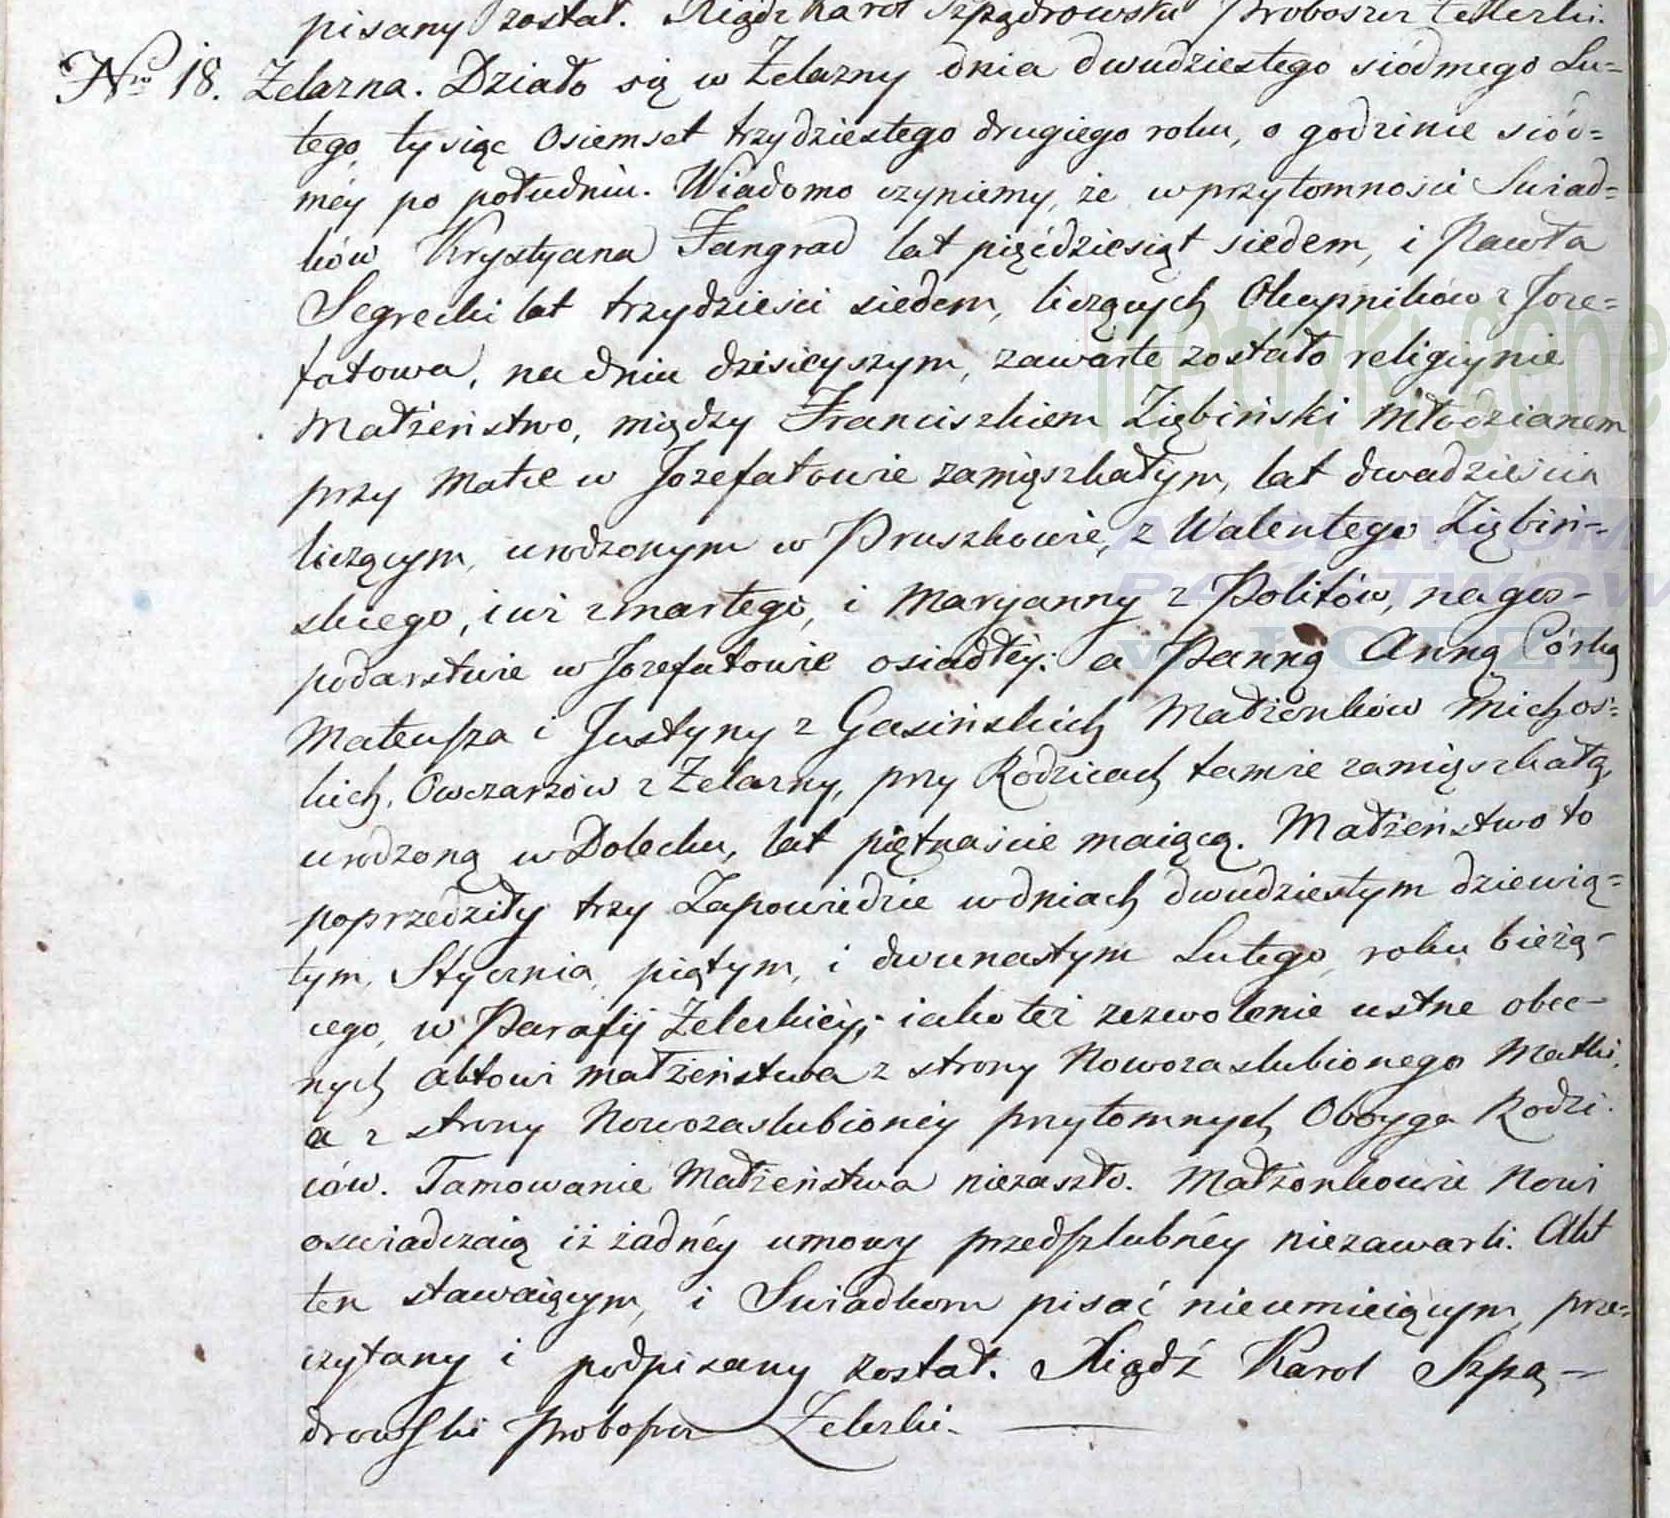 pisany został. Xiądz Karol Szpądrowski Proboszcz Żelezki.
Nro 18. Żelazna. Działo się w Żelazny dnia dwudziestego siódmego Lu=
tego tysiąc Osiemset trzydziestego drugiego roku, o godzinie siód=
méy po południu. Wiadomo czyniemy, że w przytomności Swiad=
ków Krystyana Fangrad lat pięćdziesiąt siedem, i Pawła
Segrecki lat trzydzieści siedem, liczących Okupników z Joze=
fatowa, na dniu dzisieyszym, zawarte zostało religiynie
Małżeństwo, między Franciszkiem Ziębiński Młodzianem
przy Matce w Jozefatowie zamięszkałym, lat dwadzieścia
liczącym, urodzonym w Pruszkowie, z Walentego Ziębiń=
skiego, iuż zmarłego, i Maryanny z Politów, na gos-
podarstwie w Jozefatowie osiadłéy: a Panną Anną Córką
Mateusza i Justyny z Gasińskich Małżonków Michos=
kich, Owczarzów z Żelazny, przy Rodzicach tamże zamięszkałą,
urodzoną w Dolecku, lat piętnaście maiącą. Małżeństwo to
poprzedziły trzy Zapowiedzie w dniach dwudziestym dziewią=
tym, Stycznia, piątym, i dwunastym Lutego, roku bieżą-
cego, w Parafij Żeleskiéy; iako też zezwolenie ustne obec-
nych Aktowi małżeństwa z strony Nowozaslubionego Matki,
a z strony Nowozaslubionéy przytomnych Oboyga Rodzi-
ców. Tamowanie Małżeństwa niezaszło. Małżonkowie Nowi
oswiadczaią iż żadnéy umowy przedszlubnéy niezawarli. Akt
ten stawaiącym, i Swiadkom pisać nieumieiącym, prze=
czytany i podpisany został. Xiądź Karol Szpą-
drowski Proboszcz Żelezki.
metryki.gene
ARCHIWUM
PAŃSTWOW
W ŁODZI